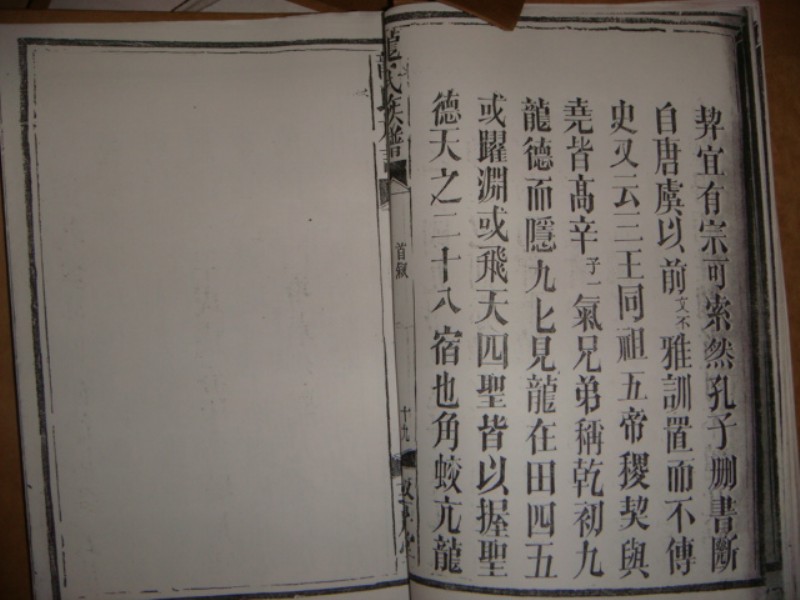 契宜有宗可索然孔子刪書斷
自唐虞以前文不雅訓置而不傳
史又云三王同祖五帝稷契與
堯皆高辛子一氣兄弟稱乾初九
龍德而隱九七見龍在田四五
或躍淵或飛天四聖皆以握聖
德天之二十八宿也角蛟亢龍
龍氏族譜
首
十九
堂